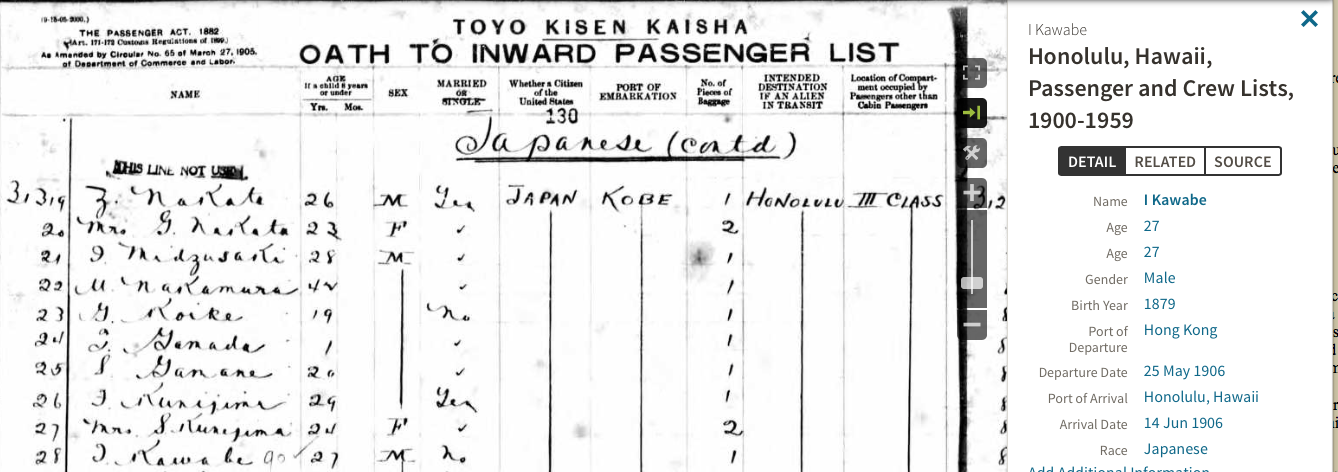 (9-18-05-2000.)
THE PASSENGER ACT. 1882
(Art. 171-172 Customs Regulations of 1899.)
As Amended by Circular No. 65 of March 27, 1905.
of Department of Commerce and Labor.
TOYO KISEN KAISHA
OATH TO INWARD PASSENGER LIST
NAME
AGE
If a child 6 years
or under
Yrs. Mos.
SEX
MARRIED
OR
SINGLE
Whether a Citizen
of the
United States
PORT OF
EMBARKATION
No. of
Pieces of
Baggage
INTENDED
DESTINATION
IF AN ALIEN
IN TRANSIT
Location of Compart-
ment occupied by
Passengers other than
Cabin Passengers
130
Japanese (contd)
THIS LINE NOT USED
3,319 Z. Nakata 26 M Yes JAPAN KOBE 1 HONOLULU III CLASS
20 Mrs G. Nakata 23 F ✓ 2
21 Midzusaki 28 M ✓ 1
22 U. Nakamura 42 ✓ 1
23 G. Koike 19 No 1
24 Gamada 1 ✓ 1
25 Gamane 20 ✓ 1
26 Kunijima 29 Yes 1
27 Mrs. S. Kunijima 24 F ✓ 2
28 Kawabe 27 M No 1
I Kawabe
Honolulu, Hawaii,
Passenger and Crew Lists,
1900-1959
DETAIL RELATED SOURCE
Name I Kawabe
Age 27
Age 27
Gender Male
Birth Year 1879
Port of Departure Hong Kong
Departure Date 25 May 1906
Port of Arrival Honolulu, Hawaii
Arrival Date 14 Jun 1906
Race Japanese
Add Additional Information